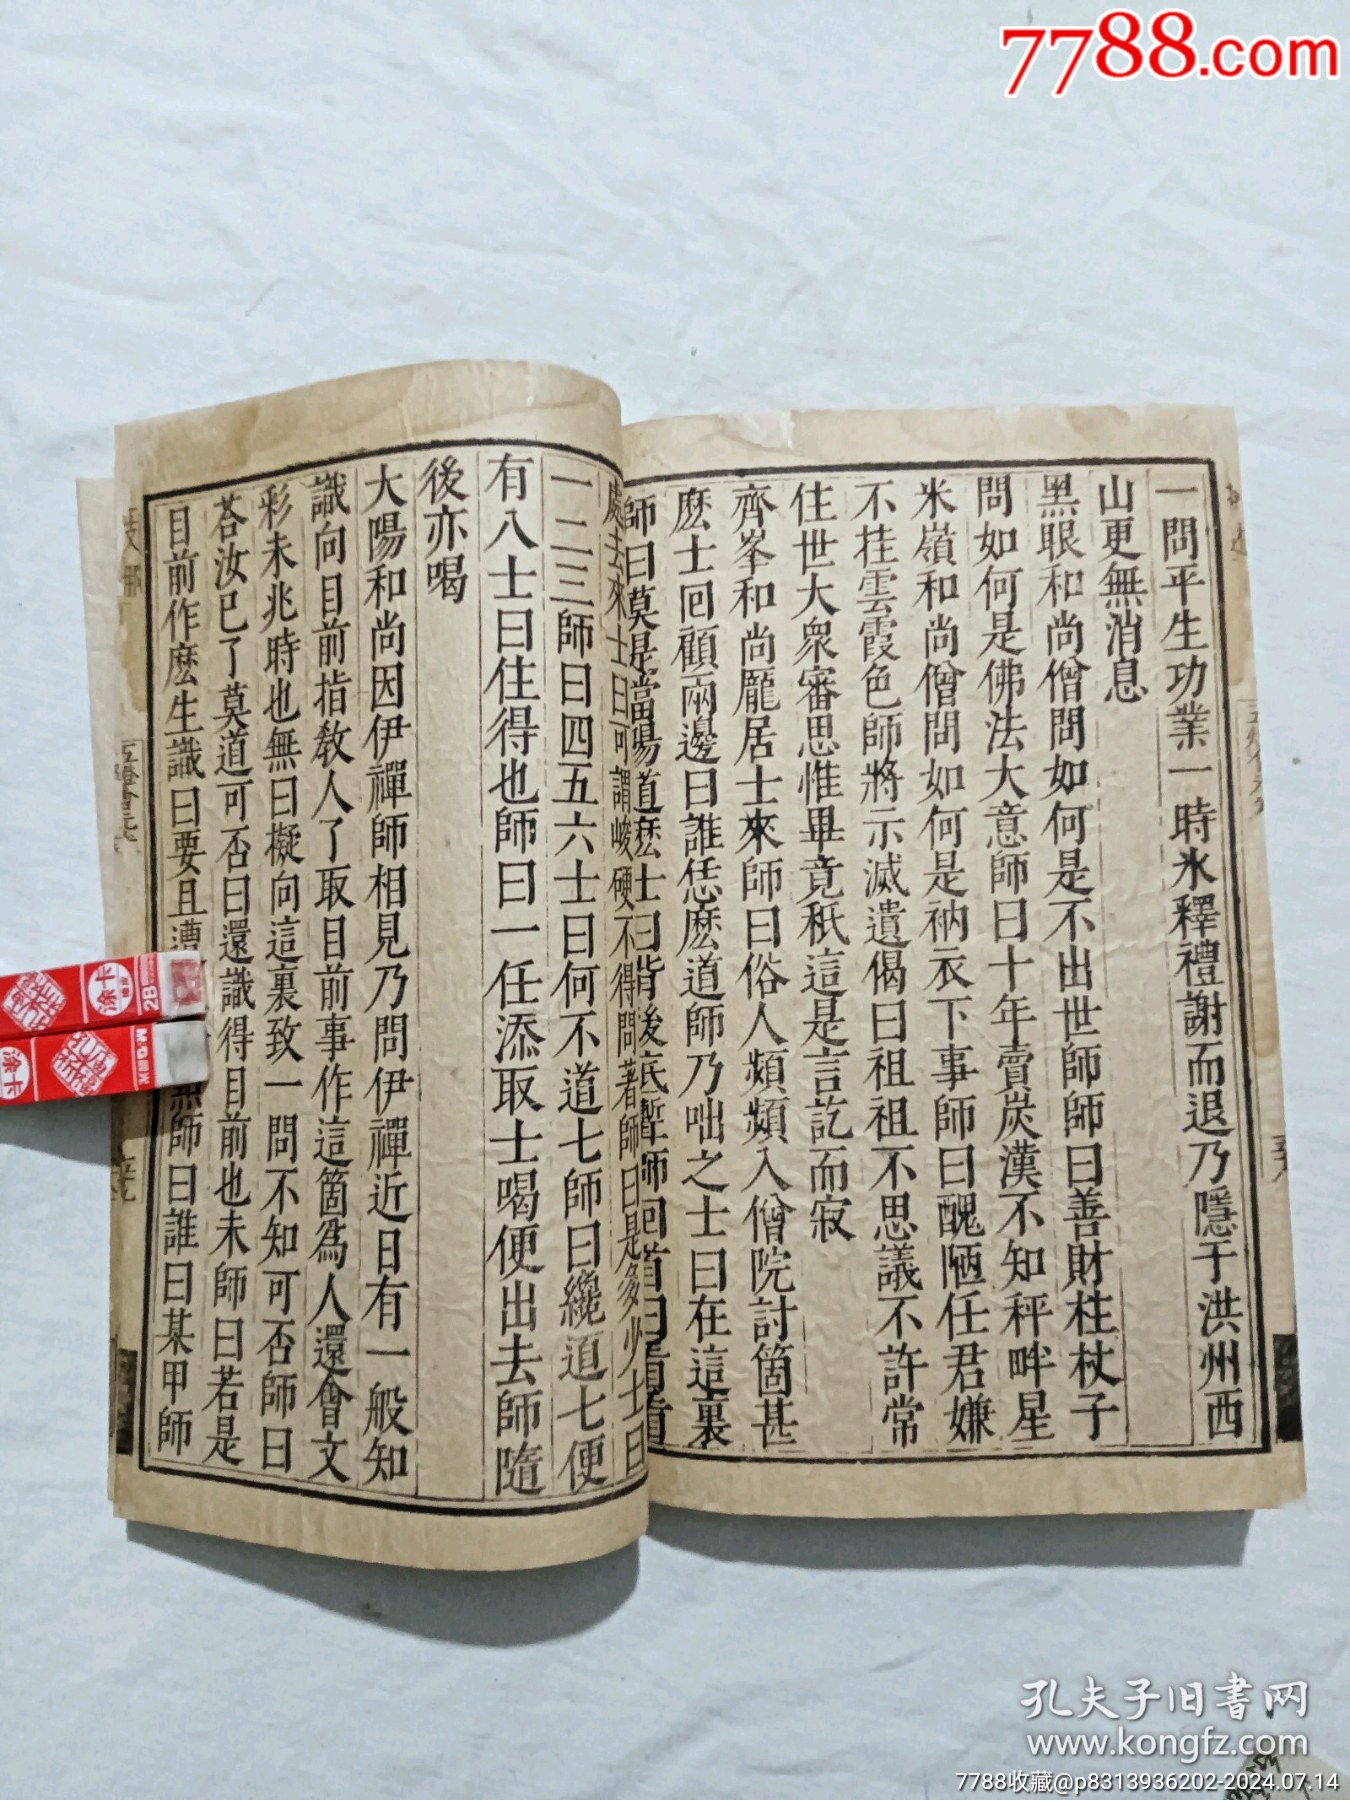 7788.com
一問平生功業一時氷釋禮謝而退乃隱于洪州西
山更無消息
黑眼和尚僧問如何是不出世師師曰善財拄杖子
問如何是佛法大意師曰十年賣炭漢不知秤畔星
米嶺和尚僧問如何是衲衣下事師曰醜陋任君嫌
不挂雲霞色師將示滅遺偈曰祖祖不思議不許常
住世大衆審思惟畢竟秪這是言訖而寂
齊峯和尚龐居士來師曰俗人頻頻入僧院討箇甚
麽士回顧兩邊曰誰恁麽道師乃咄之士曰在這裏
師曰莫是當陽道麽士曰背後底聻師回首曰看看
處去來士曰可謂峻硬不得問著師曰是多少士曰
一二三師曰四五六士曰何不道七師曰纔道七便
有八士曰住得也師曰一任添取士喝便出去師隨
後亦喝
大陽和尚因伊禪師相見乃問伊禪近日有一般知
識向目前指敎人了取目前事作這箇爲人還會文
彩未兆時也無曰擬向這裏致一問不知可否師曰
荅汝已了莫道可否曰還識得目前也未師曰若是
目前作麽生識曰要且遭
師曰誰曰某甲師
五燈會元
孔夫子旧書网
www.kongfz.com
7788收藏@p8313936202-2024.07.14